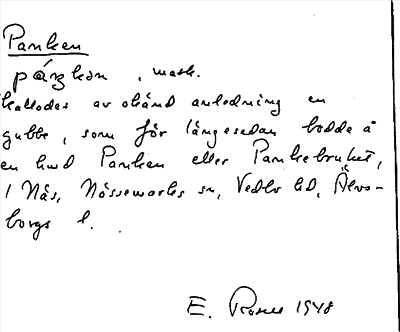 Panken
páŋkən, mask.
kallades av okänd anledning en
gubbe, som för längesedan bodde å
en lund Panken eller Pankebruket,
i Nås, Nössemarks sn, Vedbo hd, Älvs-
borgs l.
E. 1948